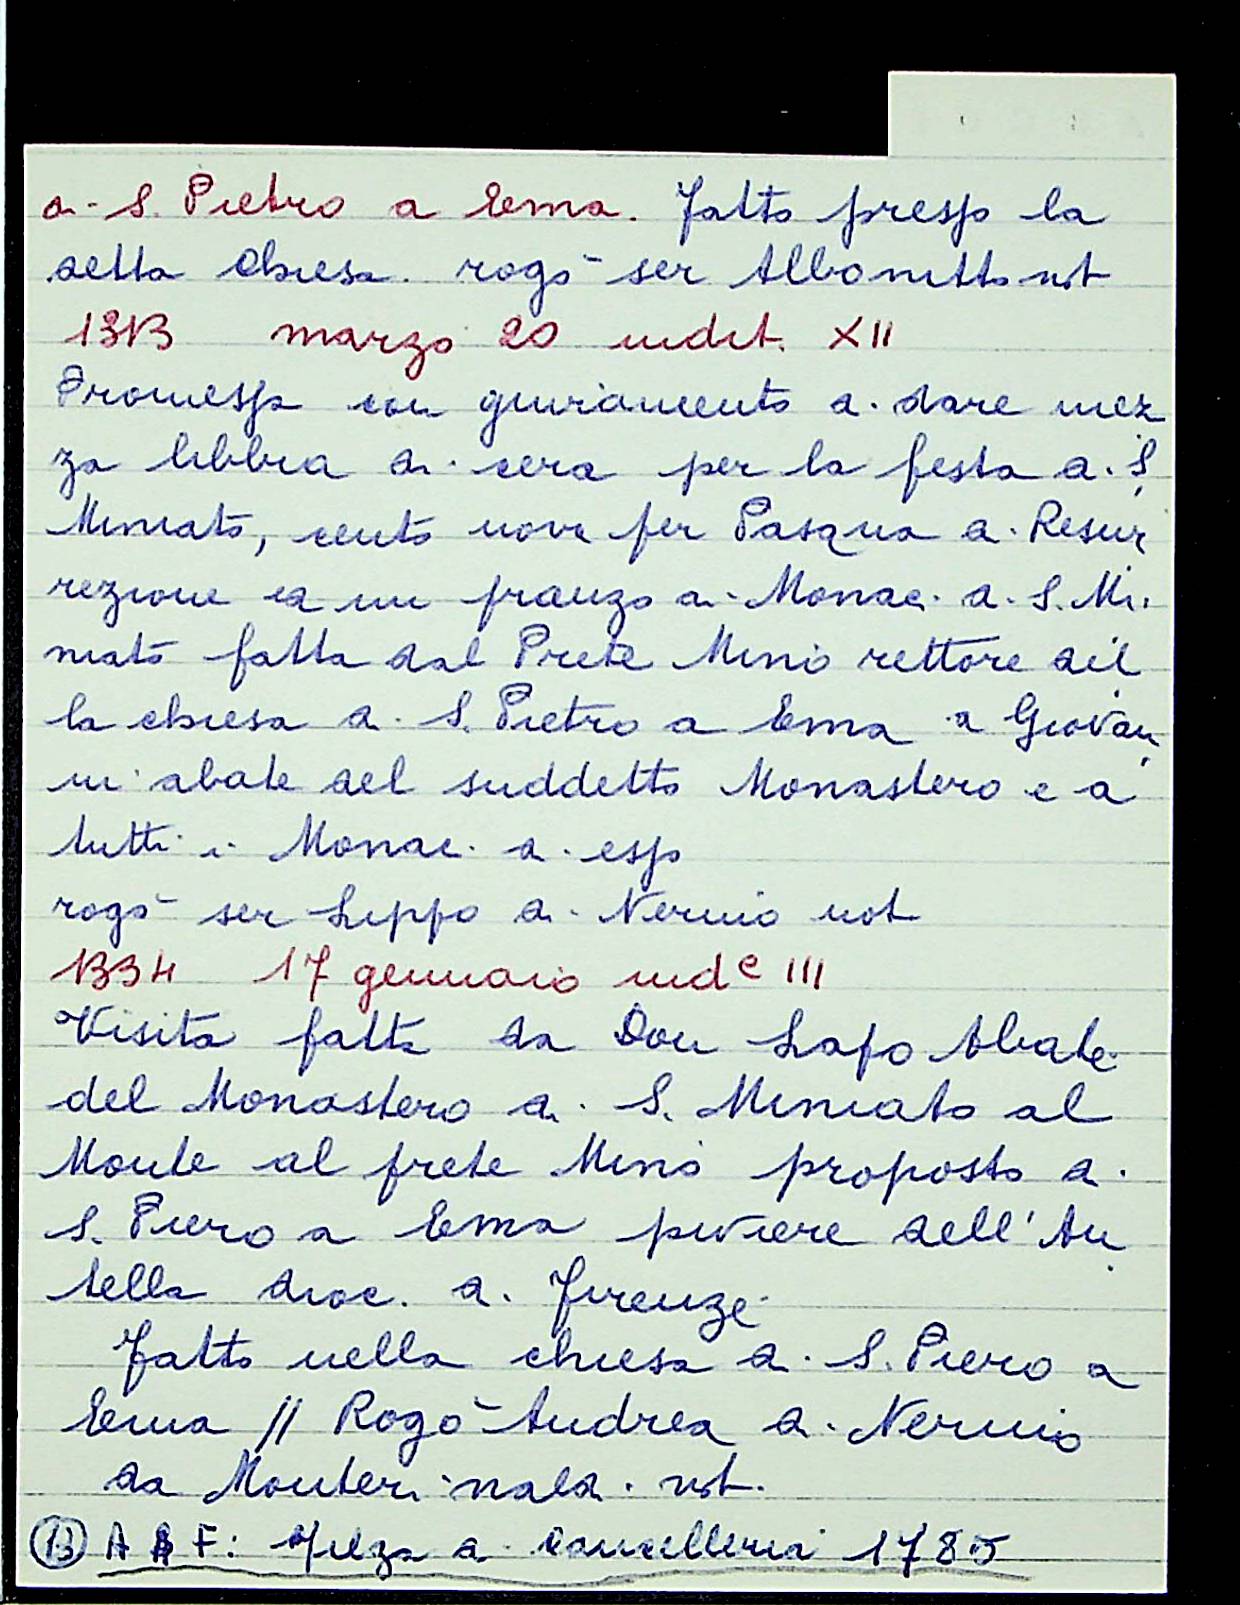 di S. Pietro a Ema. Fatto presso la
detta Chiesa. rogò ser Albonetto not
1313 marzo 20 indit. XII
Promessa con giuramento di dare mez
za libbra di cera per la festa di S.
Miniato, cento uova per Pasqua di Resur
rezione ed un pranzo ai Monaci di S. Mi.
niato fatta dal Prete Mino rettore del
la chiesa di S. Pietro a Ema a Giovan
ni abate del suddetto Monastero e a
tutti i Monaci di esso
rogò ser Lippo di Nerino not
1334 17 gennaio inde III
Visita fatta da Don Lapo Abate
del Monastero di S. Miniato al
Monte al prete Mino proposto di
S. Piero a Ema piviere dell'An
tella dioc. di Firenze
Fatto nella chiesa di S. Piero a
Ema // Rogò Andrea di Nerino
da Monterinaldi not.
13 A S F: Filza di Cancelleria 1785